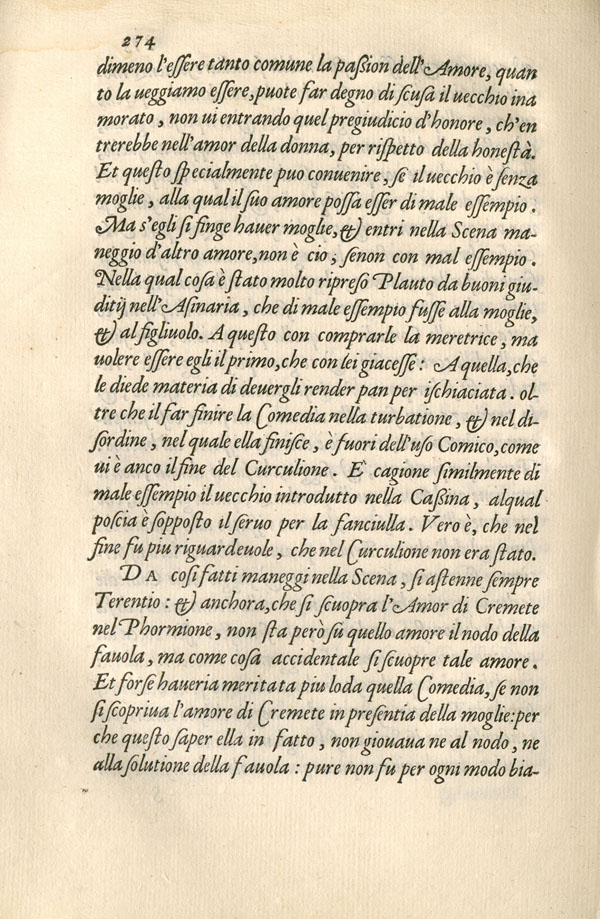 274
dimeno l'eſſere tanto comune la paßion dell'Amore, quan
to la ueggiamo eſſere, puote far degno di ſcuſa il uecchio ina
morato, non ui entrando quel pregiudicio d'honore, ch'en
trerebbe nell'amor della donna, per riſpetto della honeſtà.
Et queſto ſpecialmente puo conuenire, ſe il uecchio è ſenza
moglie, alla qual il ſuo amore poſſa eſſer di male eſſempio.
Ma s'egli ſi finge hauer moglie, & entri nella Scena ma-
neggio d'altro amore, non è cio, ſenon con mal eſſempio.
Nella qual coſa è ſtato molto ripreſo Plauto da buoni giu-
ditij nell'Aſinaria, che di male eſſempio fuſſe alla moglie,
& al figliuolo. A queſto con comprarle la meretrice, ma
uolere eſſere egli il primo, che con lei giaceſſe: A quella, che
le diede materia di deuergli render pan per iſchiaciata. ol-
tre che il far finire la Comedia nella turbatione, & nel di-
ſordine, nel quale ella finiſce, è fuori dell'uſo Comico, come
ui è anco il fine del Curculione. E cagione ſimilmente di
male eſſempio il uecchio introdutto nella Caßina, alqual
poſcia è ſoppoſto il ſeruo per la fanciulla. Vero è, che nel
fine fu piu riguardeuole, che nel Curculione non era ſtato.
DA coſi fatti maneggi nella Scena, ſi aſtenne ſempre
Terentio: & anchora, che ſi ſcuopra l'Amor di Cremete
nel Phormione, non ſta però ſu quello amore il nodo della
fauola, ma come coſa accidentale ſi ſcuopre tale amore.
Et forſe haueria meritata piu loda quella Comedia, ſe non
ſi ſcopriua l'amore di Cremete in preſentia della moglie: per
che queſto ſaper ella in fatto, non giouaua ne al nodo, ne
alla ſolutione della fauola: pure non fu per ogni modo bia-